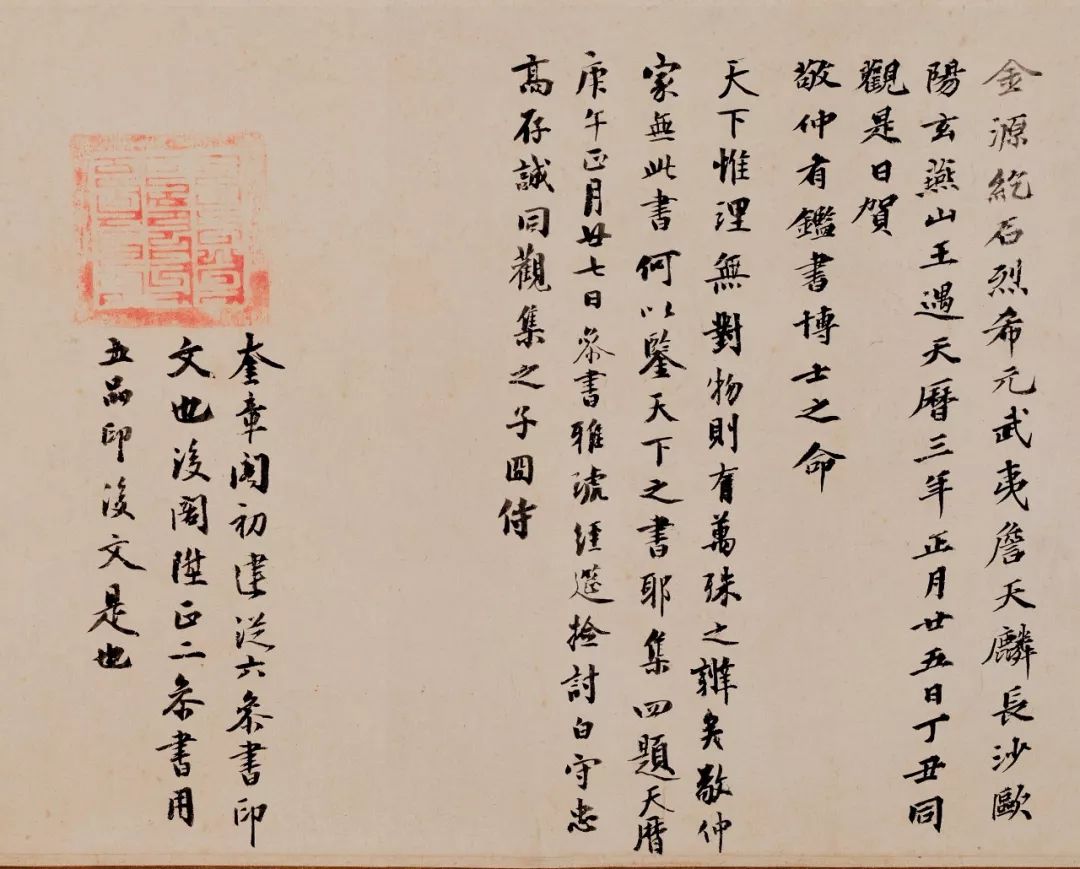 金源紇石烈希元武夷詹天麟長沙歐
陽玄燕山王遇天曆三年正月廿五日丁丑同
觀是日賀
敬仲有鑑書博士之命
天下惟理無對物則有萬殊之辨矣敬仲
家無此書何以鑒天下之書耶集四題天曆
庚午正月廿七日參書雅琥經筵撿討白守忠
高存誠同觀集之子囧侍
奎章閣初建從六參書印
文也後閣陞正二參書用
五品印後文是也